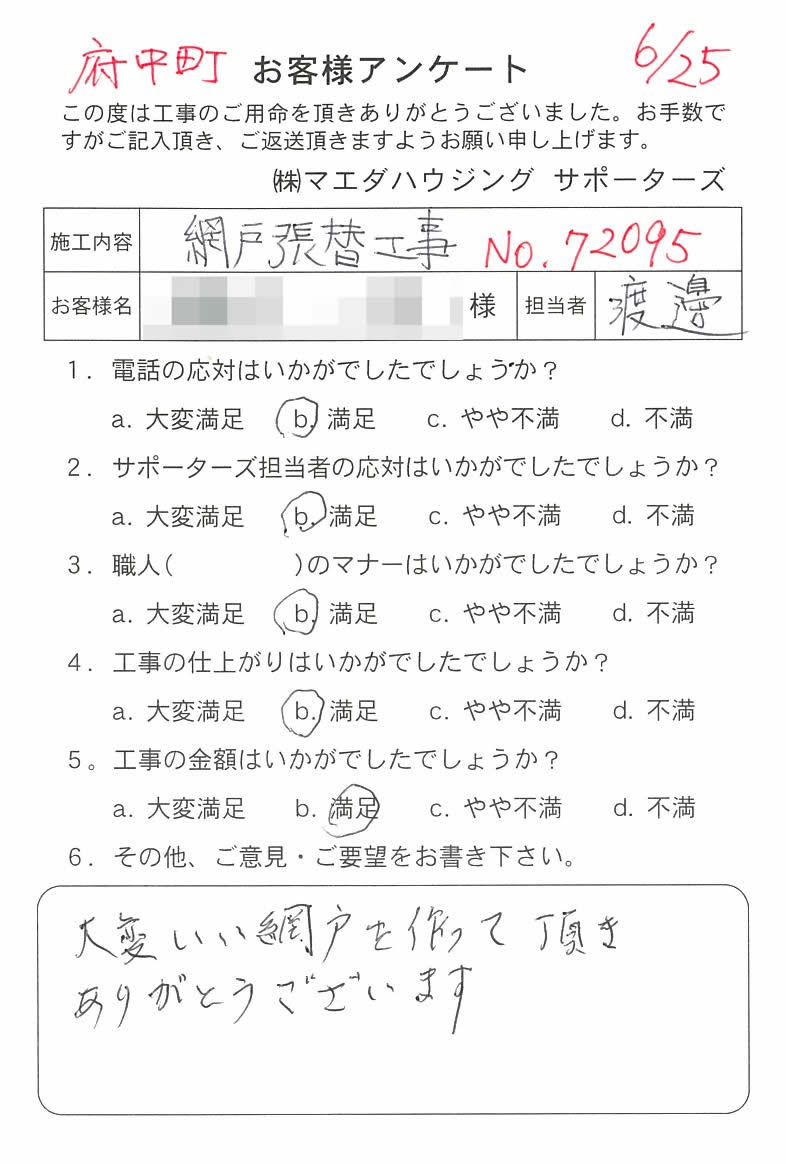 府中町 お客様アンケート 6/25
この度は工事のご用命を頂きありがとうございました。お手数で
すがご記入頂き、ご返送頂きますようお願い申し上げます。
㈱マエダハウジング サポーターズ
施工内容 網戸張替工事 No.72095
お客様名 様 担当者 渡邊
1. 電話の応対はいかがでしたでしょうか？
a. 大変満足 b. 満足 c. やや不満 d. 不満
2. サポーターズ担当者の応対はいかがでしたでしょうか？
a. 大変満足 b. 満足 c. やや不満 d. 不満
3. 職人( )のマナーはいかがでしたでしょうか？
a. 大変満足 b. 満足 c. やや不満 d. 不満
4. 工事の仕上がりはいかがでしたでしょうか？
a. 大変満足 b. 満足 c. やや不満 d. 不満
5。工事の金額はいかがでしたでしょうか？
a. 大変満足 b. 満足 c. やや不満 d. 不満
6. その他、ご意見・ご要望をお書き下さい。
大変いい網戸を作って頂き
ありがとうございます